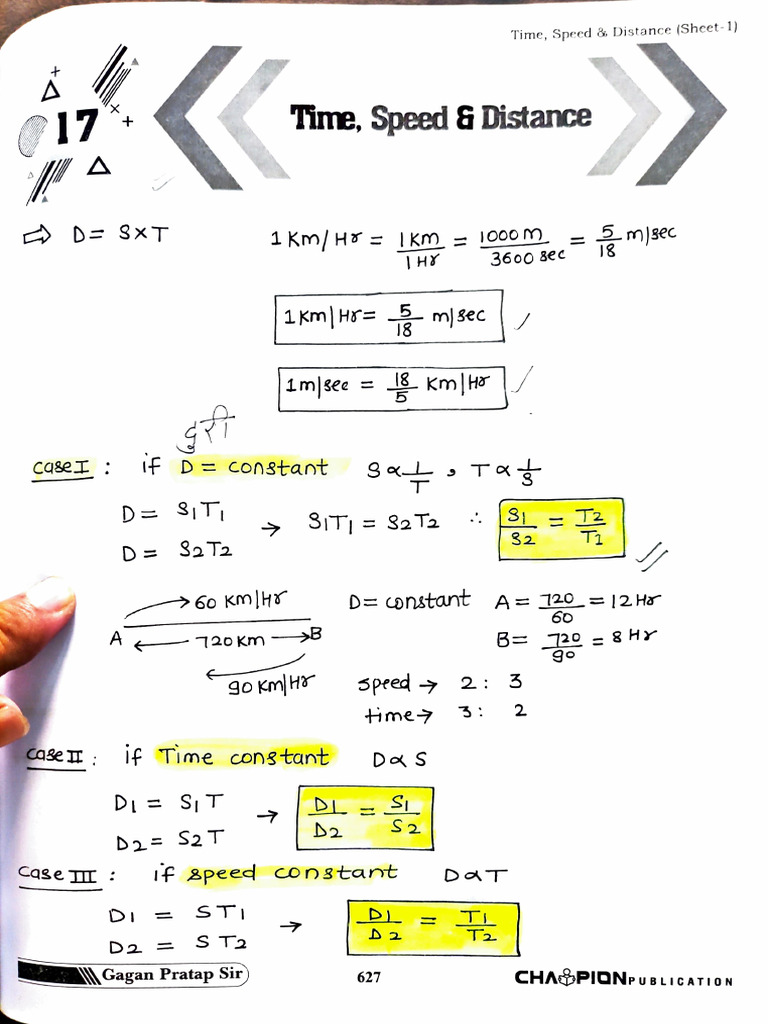 Time, Speed & Distance (Sheet-1)
17
Time, Speed & Distance
⇨ D = S×T
1 Km/Hr = 1Km/1Hr = 1000 m/3600 sec = 5/18 m/sec
1 Km/Hr = 5/18 m/sec ✓
1 m/sec = 18/5 Km/Hr ✓
दुरी
Case I : if D = constant S ∝ 1/T , T ∝ 1/S
D = S1T1
D = S2T2
→ S1T1 = S2T2 ∴ S1/S2 = T2/T1
→ 60 Km/Hr
A ← 720 Km → B
90 Km/Hr
D = constant A = 720/60 = 12 Hr
B = 720/90 = 8 Hr
speed → 2 : 3
time → 3 : 2
Case II : if Time constant D ∝ S
D1 = S1T
D2 = S2T
→ D1/D2 = S1/S2
Case III : if speed constant D ∝ T
D1 = ST1
D2 = ST2
→ D1/D2 = T1/T2
Gagan Pratap Sir
627
CHAMPION PUBLICATION